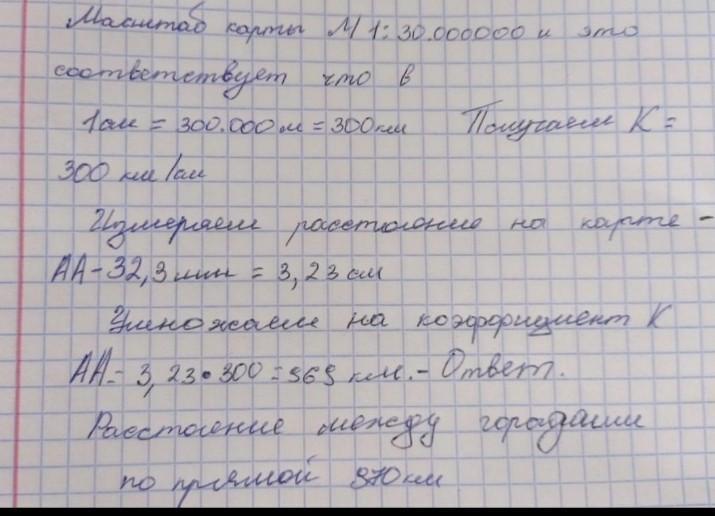 Масштаб карты М 1:30.000000 и это
соответствует что в
1см = 300.000м = 300км Получаем К =
300 км/см
Измеряем расстояние на карте -
АА-32,3мм = 3,23см
Умножаем на коэффициент К
АА= 3,23•300=969 км.- Ответ.
Расстояние между городами
по прямой 970км